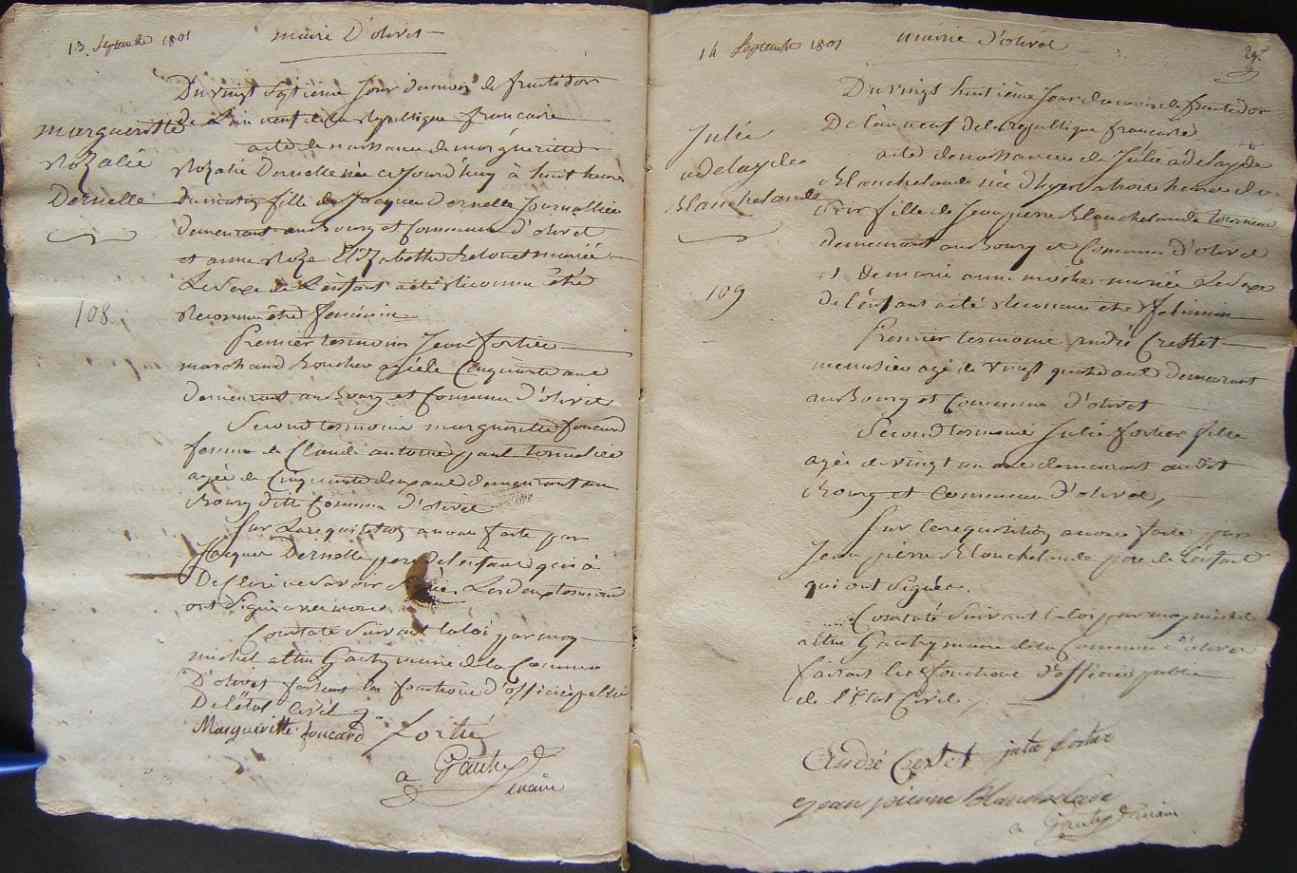 13 Septembre 1801
mairie D'olivet
Margueritte
Rozalie
Dernelle
108
Du vingt Septieme Jour du mois de fructidor
de L'an neuf de la Republique francaise
acte de naissance de margueritte
Rozalie Dernelle née ce Jourd'huy à huit heures
du matin fille de Jacques Dernelle Journallier
demeurant au Bourg et Commune d'olivet
et anne Roze Elizabethe mariée
Le Sexe de L'enfant a été Reconnu être
Reconnu être feminin
Premier temoins Jean fortié
marchand Boucher agé de Cinquante ans
Demeurant au Bourg et Commune d'olivet
Second temoine marguerritte foucard
femme de Claude antoine paul
agée de Cinquante deux ans demeurant au
Bourg Ditte Commune d'olivet
Sur La requisition a nous faite par
Jacques Dernelle pere de l'enfant qui à
Declaré ne Savoir Signer Les deux temoins
ont Signé avec nous
Constaté Suivant la loi par moy
michel maire de la Commune
D'olivet faisant les fonctions d'officier public
De l'état Civil
Margueritte foucard fortié
maire
14 Septembre 1801
mairie d'olivet
Julie
adelayde
Blanchelande
109
Du vingt huitième Jour du mois de fructidor
De l'an neuf de la republique francaise
acte de naissance de Julie adelayde
Blanchelande née d'hyer a trois heures du
Soir fille de Jean pierre Blanchelande tonneau
demeurant au Bourg et Commune d'olivet
et de marie anne mariée Le Sexe
De l'enfant a été Reconnu etre feminin
Premier temoine andré Cresset
menusier agé de Vingt quatre ans Demeurant
au Bourg et Commune d'olivet
Second temoine Julie fortier fille
agée de vingt un ans demeurant audit
Bourg et Commune d'olivet,
Sur la requisition a nous faite par
Jean pierre Blanchelande pere de L'enfant
qui ont Signés.
Constaté Suivant la loi par moy michel
maire de la Commune d'olivet
faisant les fonctions d'officier public
de l'Etat Civil,
André Cresset julie fortier
jean pierre Blanchelande
maire